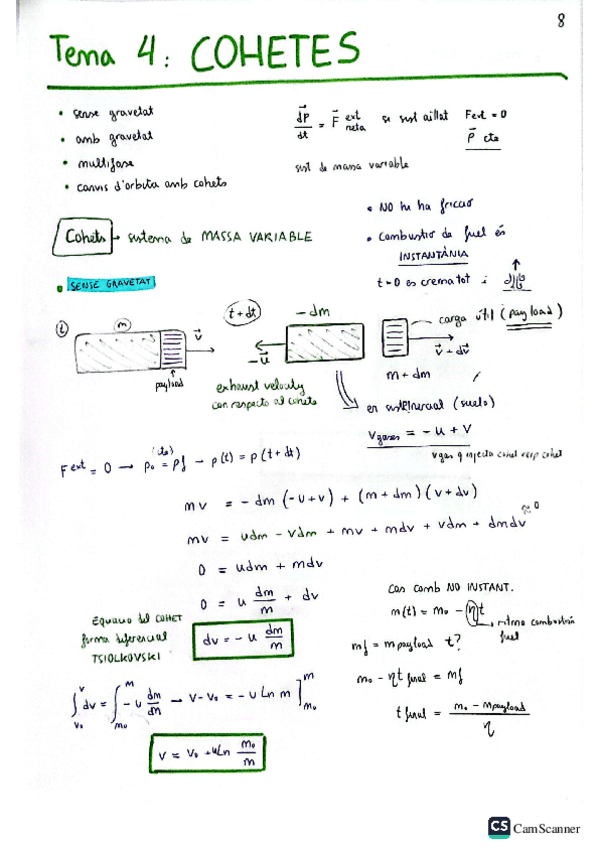 8
Tema 4: COHETES
• sense gravetat
• amb gravetat
• multifase
• canvis d'orbita amb cohets
dP/dt = F ext neta si sist aïllat Fext = 0
P cte
sist de massa variable
Cohets → sistema de MASSA VARIABLE
• NO hi ha fricció
• Combustió de fuel és
INSTANTÀNIA
t=0 es crema tot i
• SENSE GRAVETAT
t
m
v
payload
t+dt
-dm
-u
exhaust velocity
con respecto al cohete
carga útil (payload)
v + dv
m + dm
en sist inercial (suelo)
Vgases = -u + v
Vgas q injecta cohet resp cohet
F ext = 0 → p₀ = pf → p(t) = p(t+dt)
(cte)
mv = -dm (-u+v) + (m+dm)(v+dv)
mv = udm - vdm + mv + mdv + vdm + dmdv ≈0
0 = udm + mdv
0 = u dm/m + dv
Equació del COHET
forma diferencial
TSIOLKOVSKI
dv = -u dm/m
∫ᵥ₀ᵛ dv = ∫ₘ₀ᵐ -u dm/m → v-v₀ = -u Ln m ]ₘ₀ᵐ
v = v₀ + uLn m₀/m
Cas comb NO INSTANT.
m(t) = m₀ - ηt
ritmo combustión
fuel
mf = mpayload t?
m₀ - ηt final = mf
t final = m₀ - mpayload / η
CS CamScanner